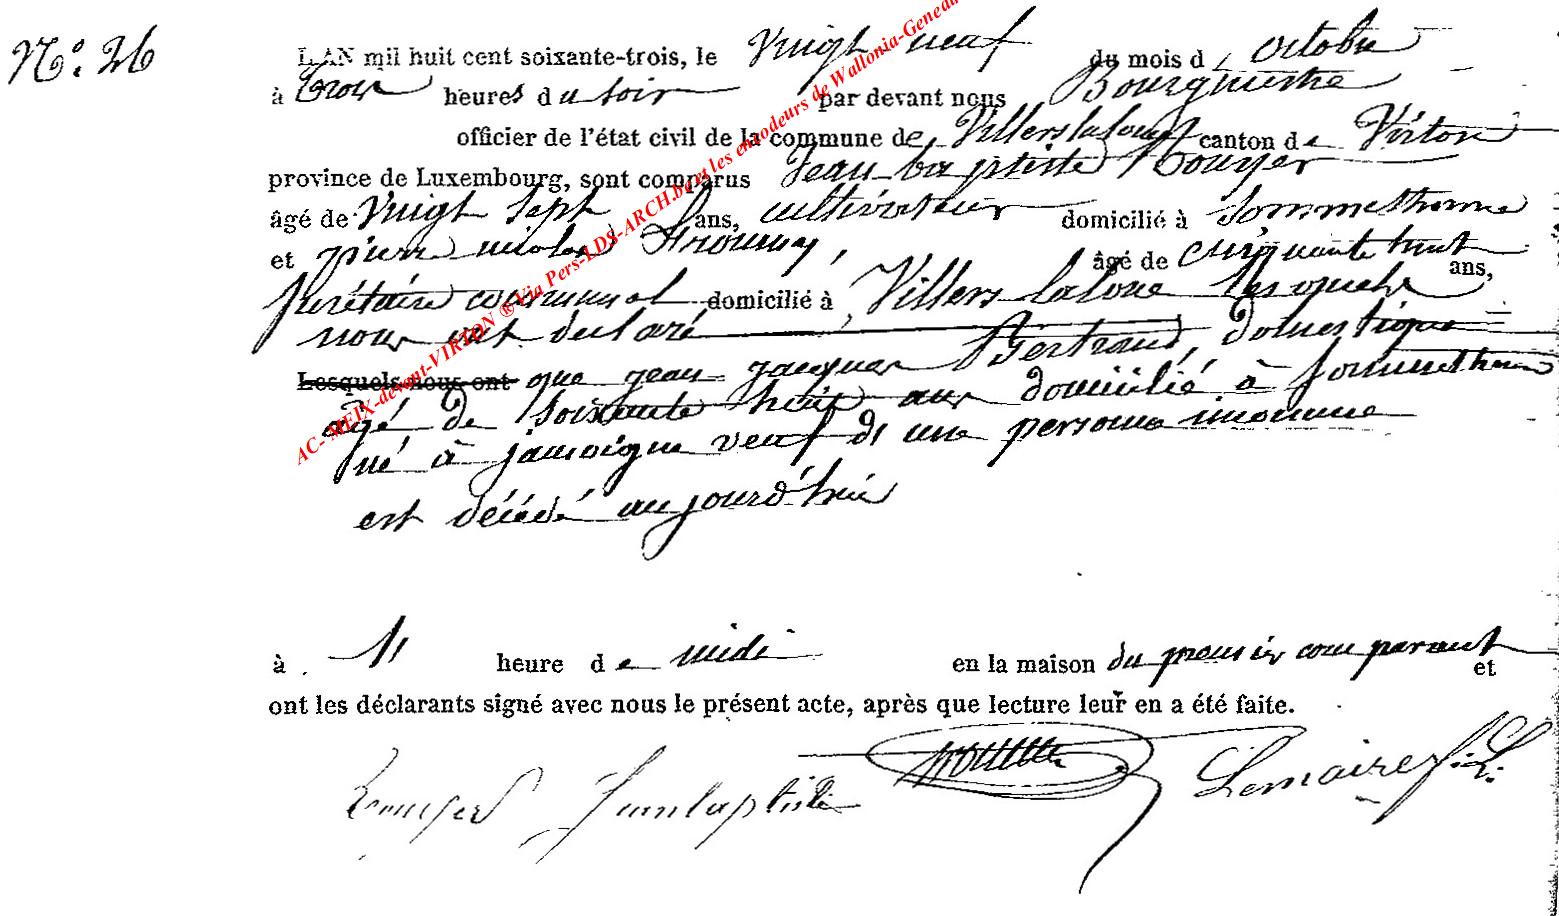 N.° 26
L'AN mil huit cent soixante-trois, le Vingt neuf du mois d'octobre
à trois heures du soir par devant nous Bourgmestre
officier de l'état civil de la commune de Villers laloue canton de Virton
province de Luxembourg, sont comparus Jean baptiste
âgé de Vingt sept ans, cultivateur domicilié à Sommethonne
et pierre nicolas âgé de cinquante huit ans,
secrétaire communal domicilié à Villers laloue lesquels
nous ont déclaré
Lesquels nous ont que jean jacques Bertrand, domestique
agé de soixante huit ans domicilié à sommethonne
né à jamoigne veuf d'une personne inconnue
est décédé aujourd'hui
à 11 heure de midi en la maison du premier comparant et
ont les déclarants signé avec nous le présent acte, après que lecture leur en a été faite.
Jeanbaptiste Lemaire
AC-MEIX-devant-VIRTON ® Via Pers-LDS-ARCH.be et les encodeurs de Wallonia-Genea